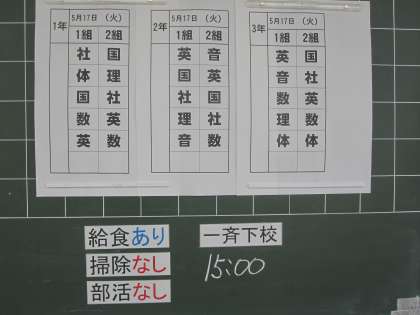 1年 5月17日 (火)
1組 2組
社 国
体 理
国 社
数 英
英 数
2年 5月17日 (火)
1組 2組
英 音
国 英
社 国
理 社
音 数
3年 5月17日 (火)
1組 2組
英 国
音 社
数 英
理 数
体 体
給食あり
掃除なし
部活なし
一斉下校
15:00